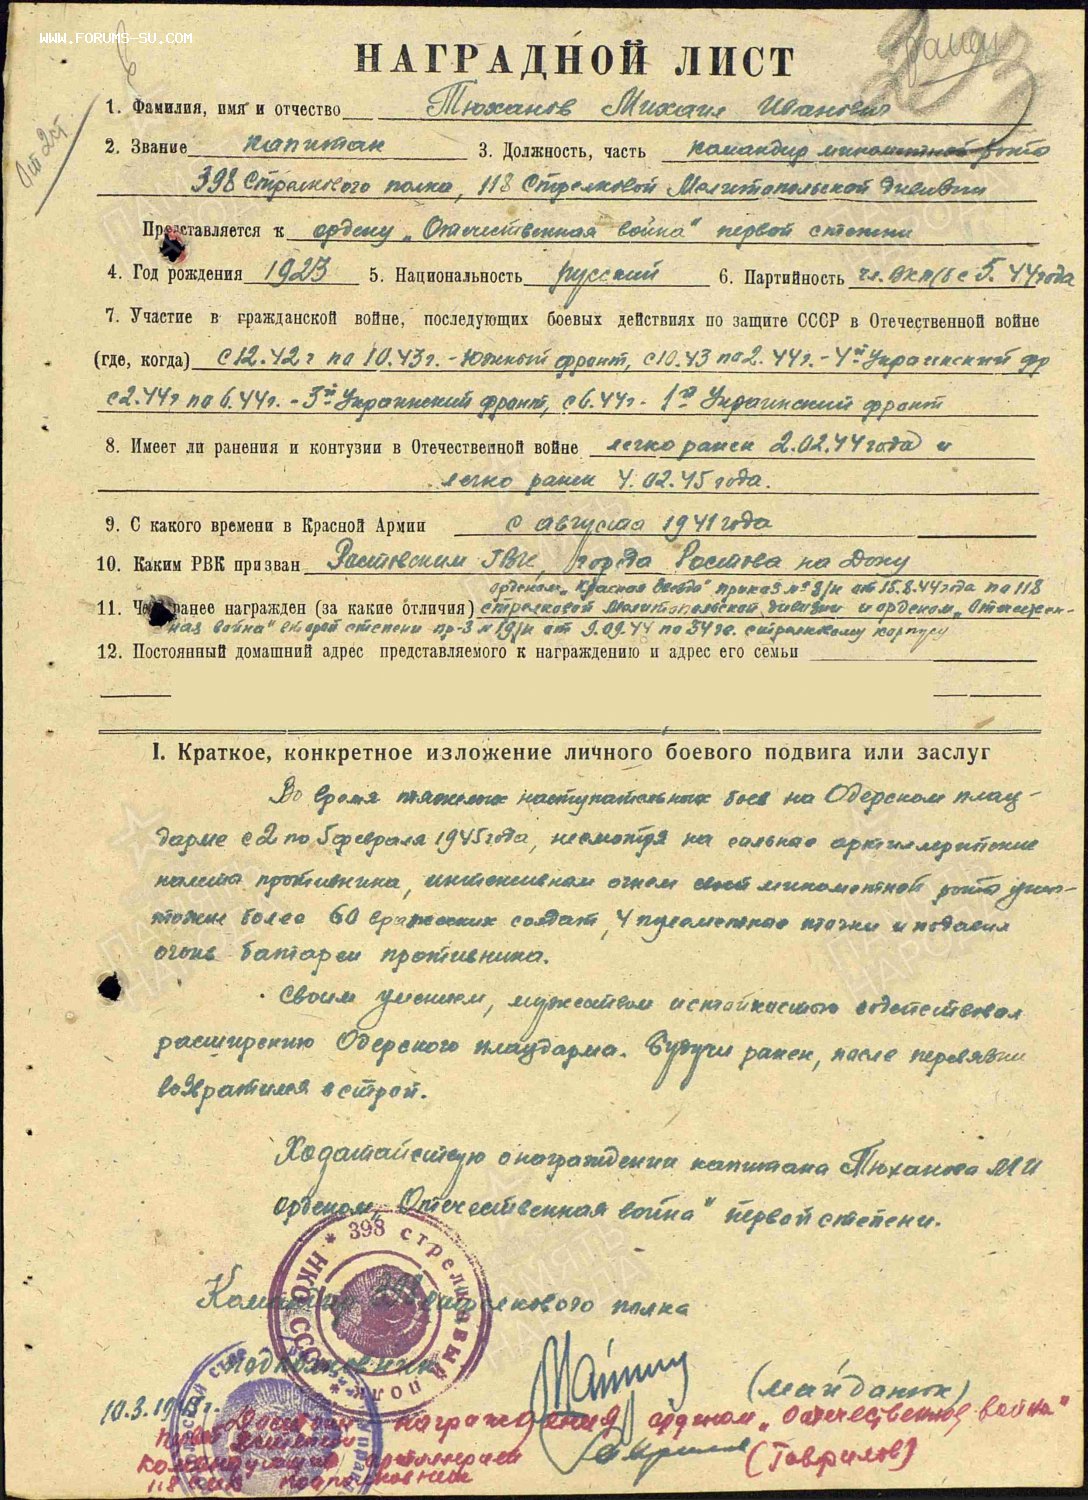 WWW.FORUMS-SU.COM
НАГРАДНОЙ ЛИСТ
1. Фамилия, имя и отчество Тюханов Михаил Иванович
2. Звание капитан 3. Должность, часть командир минометной роты
398 Стрелкового полка, 118 Стрелковой Мелитопольской дивизии
Представляется к ордену „Отечественная война" первой степени
4. Год рождения 1923 5. Национальность русский 6. Партийность чл. ВКП/б с 5.44 года
7. Участие в гражданской войне, последующих боевых действиях по защите СССР в Отечественной войне
(где, когда) с 12.42 г по 10.43 г. - Южный фронт, с 10.43 по 2.44 г. - 4й Украинский фр
с 2.44 г по 6.44 г. - 3й Украинский фронт, с 6.44 г. - 1й Украинский фронт
8. Имеет ли ранения и контузии в Отечественной войне легко ранен 2.02.44 года и
легко ранен 4.02.45 года.
9. С какого времени в Красной Армии с августа 1941 года
10. Каким РВК призван Ростовским ГВК, города Ростова на Дону
орденом „Красная Звезда" приказ № 8/н от 15.8.44 года по 118
11. Чем ранее награжден (за какие отличия) стрелковой Мелитопольской дивизии и орденом „Отечествен-
ная война" второй степени пр-з № 19/н от 9.09.44 по 34 гв. стрелковому корпусу
12. Постоянный домашний адрес представляемого к награждению и адрес его семьи
I. Краткое, конкретное изложение личного боевого подвига или заслуг
Во время тяжелых наступательных боев на Одерском плац-
дарме с 2 по 5 февраля 1945 года, несмотря на сильные артиллерийские
налеты противника, интенсивным огнем своей минометной роты унич-
тожил более 60 вражеских солдат, 4 пулеметные точки и подавил
огонь батареи противника.
Своим умением, мужеством и стойкостью содействовал
расширению Одерского плацдарма. Будучи ранен, после перевязки
возвратился в строй.
Ходатайствую о награждении капитана Тюханова М И
орденом „Отечественная война" первой степени.
398 стрелковый полк
НКО СССР
Командир 398 стрелкового полка
подполковник
(Майданюк)
10.3.1945 г.
Достоин награждения орденом „Отечественная война"
первой степени
Командующий артиллерией
118 подполковник
(Гаврилов)